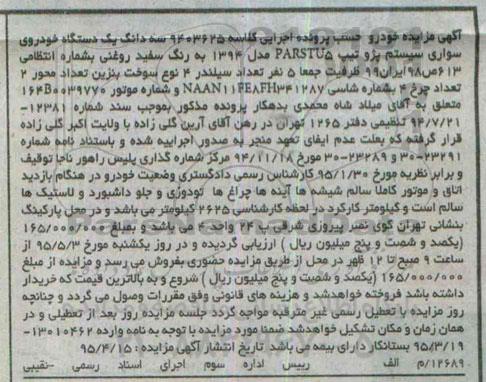 آگهی مزایده خودرو حسب پرونده اجرایی کلاسه ۹۴۰۳۶۲۵ سه دانگ یک دستگاه خودروی
سواری سیستم پژو تیپ PARSTU۵ مدل ۱۳۹۴ به رنگ سفید روغنی بشماره انتظامی
۶۱۳ص۹۸ ایران۹۹ ظرفیت جمعا ۵ نفر تعداد سیلندر ۴ نوع سوخت بنزین تعداد محور ۲
تعداد چرخ ۴ بشماره شاسی NAAN۱۱FEAFH۳۴۱۲۸۷ و شماره موتور ۱۶۴B۰۰۳۹۷۷۰
متعلق به آقای میلاد شاه محمدی بدهکار پرونده مذکور بموجب سند شماره ۱۲۳۸۱-
۹۴/۷/۲۱ تنظیمی دفتر ۱۲۶۵ تهران در رهن آقای آرین گلی زاده با ولایت اکبر گلی زاده
قرار گرفته که بعلت عدم ایفای تعهد منجر به صدور اجراییه شده و باستناد نامه شماره
۲۳۲۹۱-۳۰ و ۲۳۲۸۹-۳۰ مورخ ۹۴/۱۱/۱۸ مرکز شماره گذاری پلیس راهور ناجا توقیف
و برابر نظریه مورخ ۹۵/۱/۳۰ کارشناس رسمی دادگستری وضعیت خودرو در هنگام بازدید
اتاق و موتور کاملا سالم شیشه ها آینه ها چراغ ها تودوزی و جلو داشبورد و لاستیک ها
سالم است و کیلومتر کارکرد در لحظه کارشناسی ۲۶۲۵ کیلومتر می باشد و در محل پارکینگ
بنشانی تهران کوی نصر پیروزی شرقی پ ۲۴ واحد ۲ می باشد و بمبلغ ۱۶۵/۰۰۰/۰۰۰
(یکصد و شصت و پنج میلیون ریال) ارزیابی گردیده و در روز یکشنبه مورخ ۹۵/۵/۳ از
ساعت ۹ صبح تا ۱۲ ظهر در محل از طریق مزایده حضوری بفروش می رسد و مزایده از مبلغ
۱۶۵/۰۰۰/۰۰۰ (یکصد و شصت و پنج میلیون ریال) شروع و به بالاترین قیمت که خریدار
داشته باشد فروخته خواهدشد و هزینه های قانونی وفق مقررات وصول می گردد و چنانچه
روز مزایده با تعطیل رسمی غیر مترقبه مواجه گردد جلسه مزایده روز بعد از تعطیلی و در
همان زمان و مکان تشکیل خواهدشد ضمنا مورد مزایده با توجه به نامه وارده ۱۳۰۱۰۴۶۲-
۹۵/۳/۱۹ بستانکار دارای بیمه می باشد تاریخ انتشار آگهی مزایده : ۹۵/۴/۱۵
۱۲۶۸۹/م الف رییس اداره سوم اجرای اسناد رسمی -نقیبی